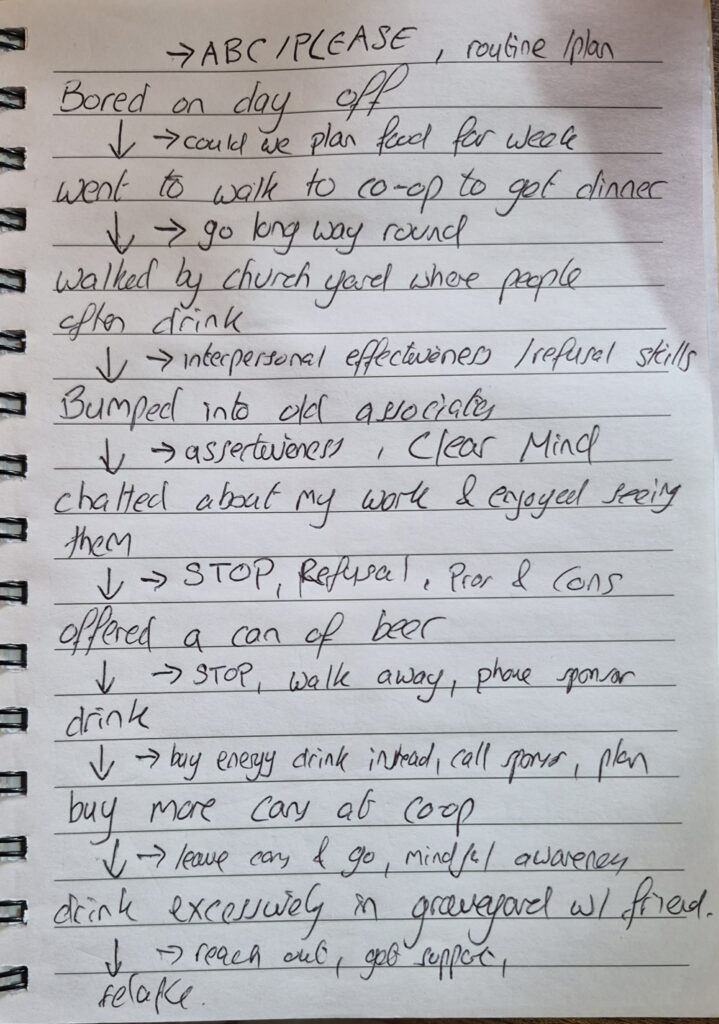 →ABC/PLEASE, routine/plan
Bored on day off
↓ →could we plan food for week
went to walk to co-op to get dinner
↓ → go long way round
walked by church yard where people
often drink
↓ →interpersonal effectiveness /refusal skills
Bumped into old associates
↓ →assertiveness, Clear Mind
chatted about my work & enjoyed seeing
them
↓ → STOP, Refusal, Pros & Cons
offered a can of beer
↓ → STOP, walk away, phone sponsor
drink
↓ → buy energy drink instead, call sponsor, plan
buy more cans at co-op
↓ → leave cans & go, mindful awareness
drink excessively in graveyard w/ friend.
↓ → reach out, get support,
relapse.